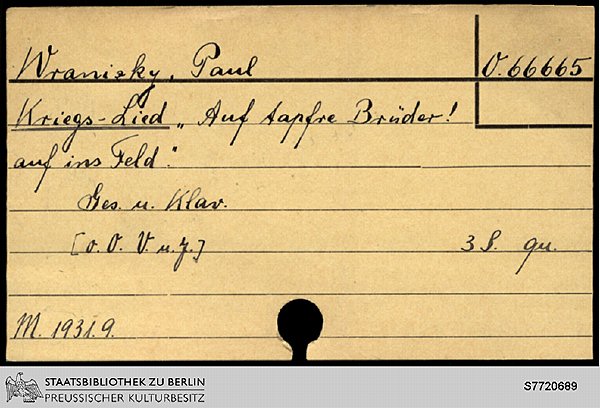 Wranizky, Paul
O. 66665
Kriegs-Lied „Auf tapfre Brüder!
auf ins Feld".
Ges. u. Klav.
[o. O. V. u. J.] 3 S. qu.
M. 1931.9.
STAATSBIBLIOTHEK ZU BERLIN
PREUSSISCHER KULTURBESITZ
S7720689